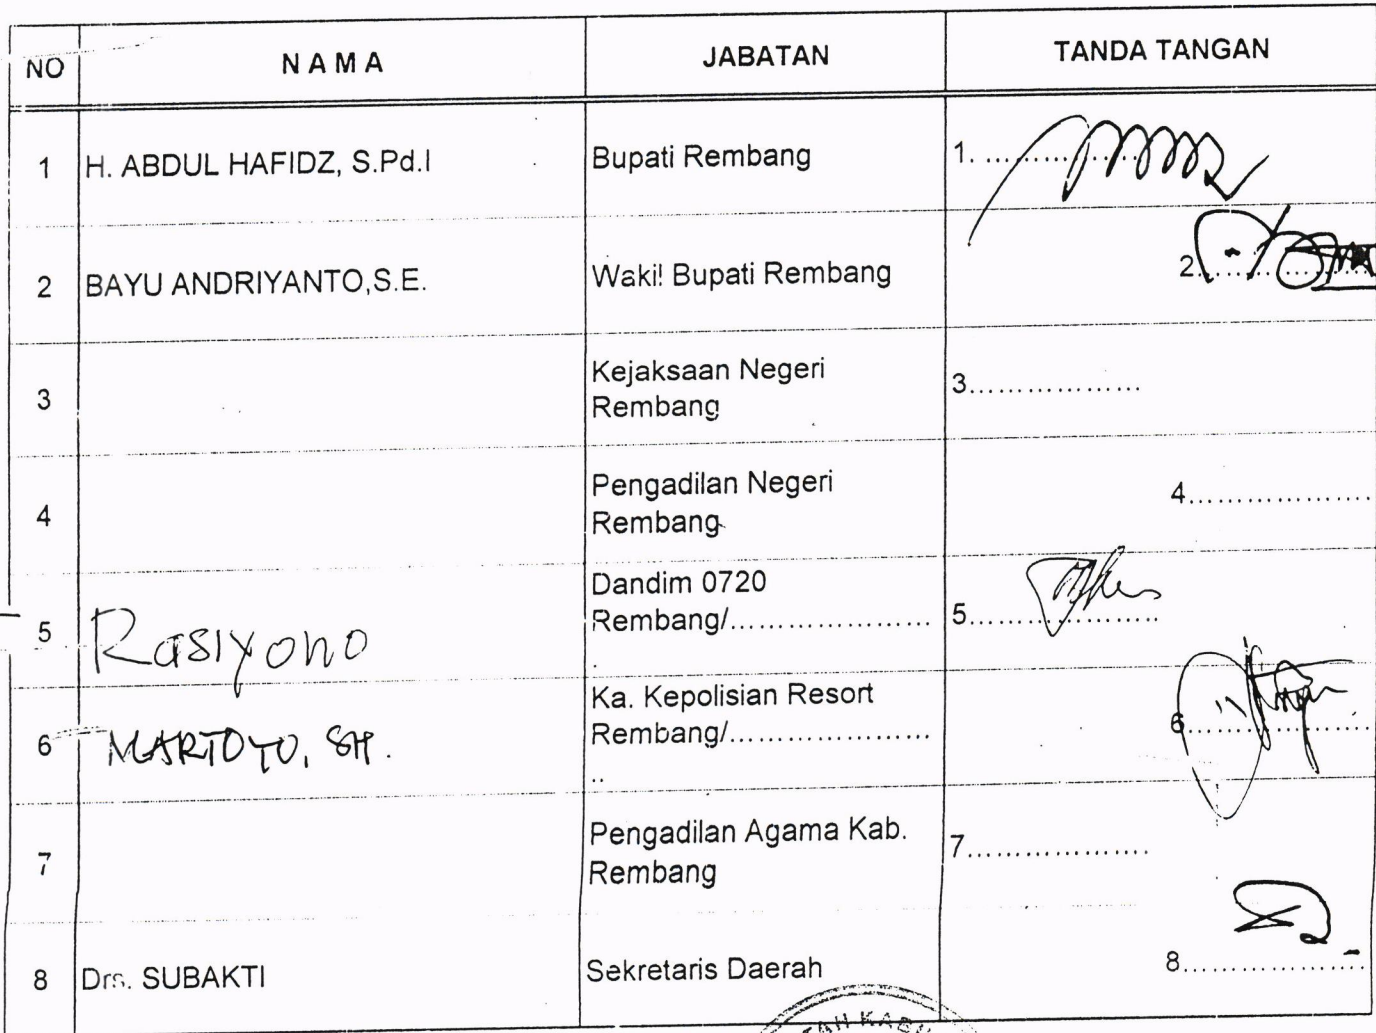 NO N A M A JABATAN TANDA TANGAN
1 H. ABDUL HAFIDZ, S.Pd.I Bupati Rembang 1. ..................
2 BAYU ANDRIYANTO,S.E. Wakil Bupati Rembang 2..................
3 Kejaksaan Negeri
Rembang 3..................
4 Pengadilan Negeri
Rembang 4..................
5 Rasiyono Dandim 0720
Rembang/..................... 5..................
.
6 MARTOYO, SH. Ka. Kepolisian Resort
Rembang/..................... 6..................
..
7 Pengadilan Agama Kab.
Rembang 7..................
8 Drs. SUBAKTI Sekretaris Daerah 8..................